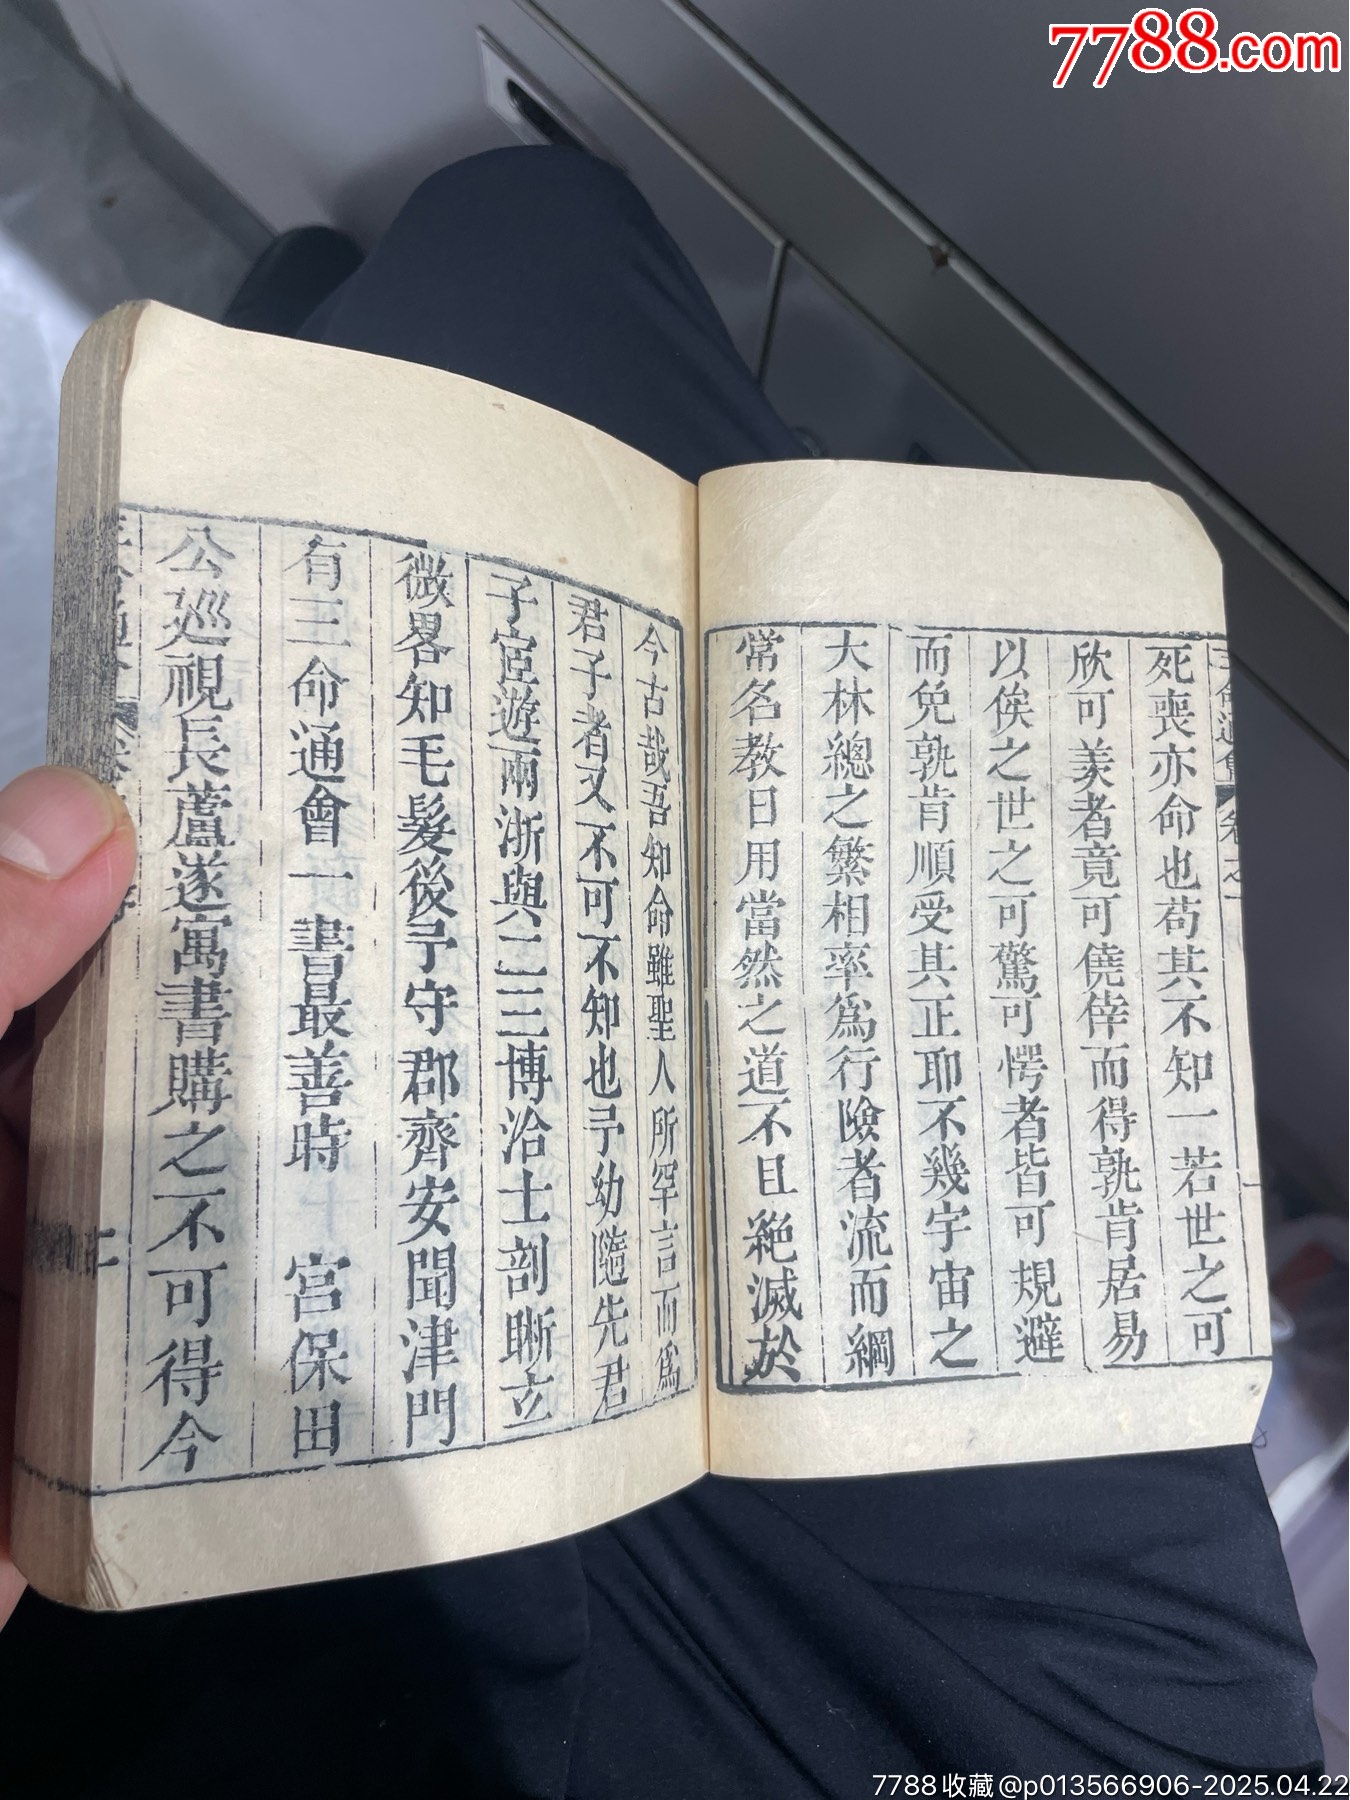 7788.com
三命通會 卷之一
死喪亦命也苟其不知一若世之可
欣可羨者竟可僥倖而得孰肯居易
以俟之世之可驚可愕者皆可規避
而免孰肯順受其正耶不幾宇宙之
大林總之繁相率爲行險者流而綱
常名教日用當然之道不且絶滅於
今古哉吾知命雖聖人所罕言而爲
君子者又不可不知也予幼隨先君
子宦遊兩浙與二三博洽士剖晰玄
微畧知毛髮後予守郡齊安聞津門
有三命通會一書最善時 宮保田
公巡視長蘆遂寓書購之不可得今
7788收藏@p013566906-2025.04.22